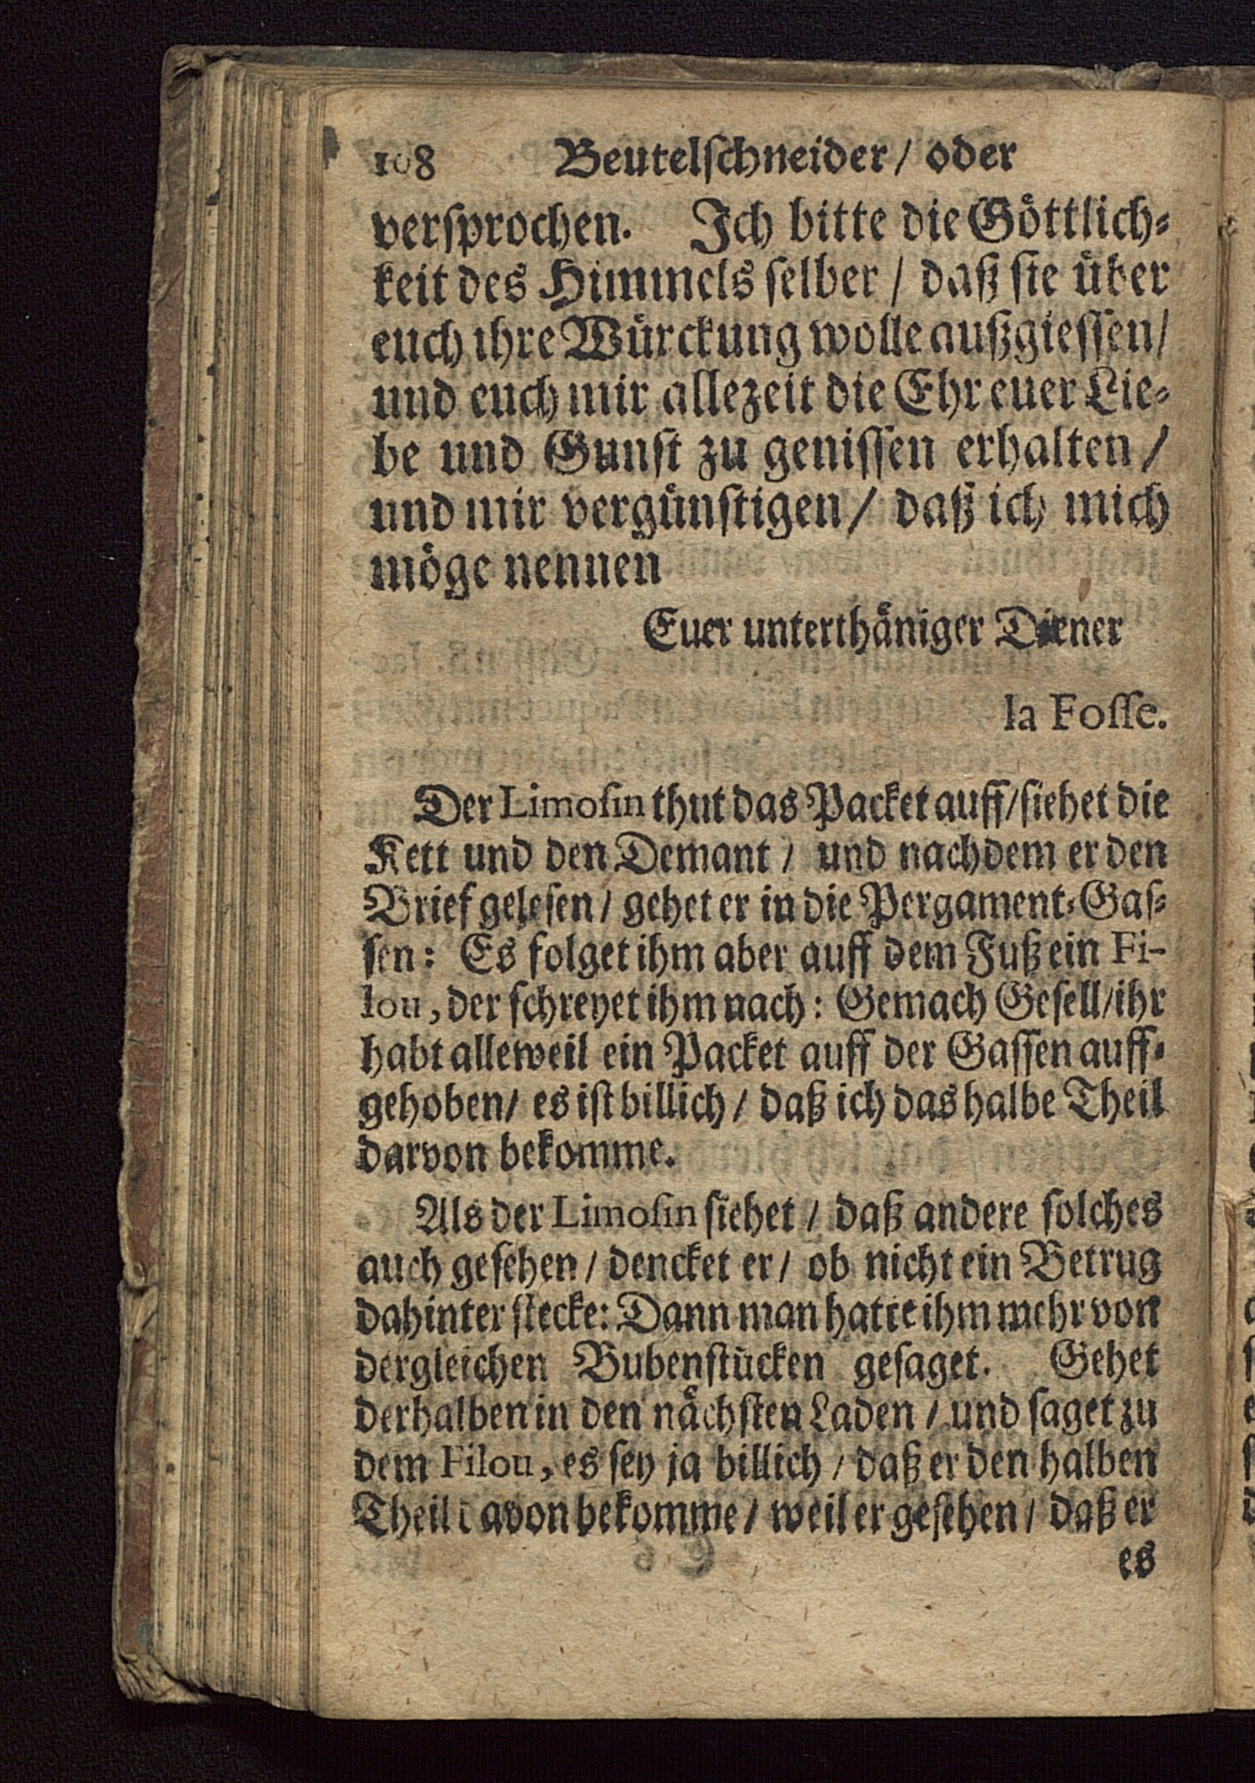 108 Beutelſchneider / oder
verſprochen. Ich bitte die Göttlich⸗
keit des Himmels ſelber / daß ſie über
euch ihre Würckung wolle außgieſſen/
und euch mir allezeit die Ehr euer Lie⸗
be und Gunſt zu genieſſen erhalten /
und mir vergünſtigen / daß ich mich
möge nennen
Euer unterthäniger Diener
la Foſſe.
Der Limoſin thut das Packet auff/ſiehet die
Kett und den Demant / und nachdem er den
Brief geleſen / gehet er in die Pergament⸗Gaſ⸗
ſen: Es folget ihm aber auff dem Fuß ein Fi-
lou, der ſchreyet ihm nach: Gemach Geſell/ihr
habt alleweil ein Packet auff der Gaſſen auff⸗
gehoben/ es iſt billich / daß ich das halbe Theil
darvon bekomme.
Als der Limoſin ſiehet / daß andere ſolches
auch geſehen / dencket er / ob nicht ein Betrug
dahinter ſtecke: Dann man hatte ihm mehr von
dergleichen Bubenſtücken geſaget. Gehet
derhalben in den nächſten Laden / und ſaget zu
dem Filou, es ſey ja billich / daß er den halben
Theil davon bekomme / weil er geſehen / daß er
es